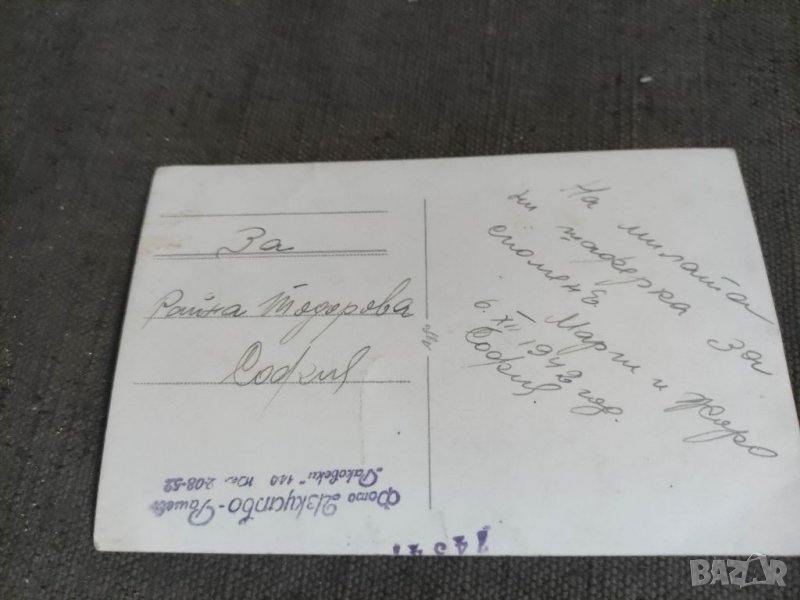 За
Райна Тодорова
София
На милата
ни шаферка за
споменъ
Мари и Жоро
6. XII 1942 год.
София.
Фото Изкуство - Рашев
"Раковски" 140 Тел. 2-08-52
BAZAR